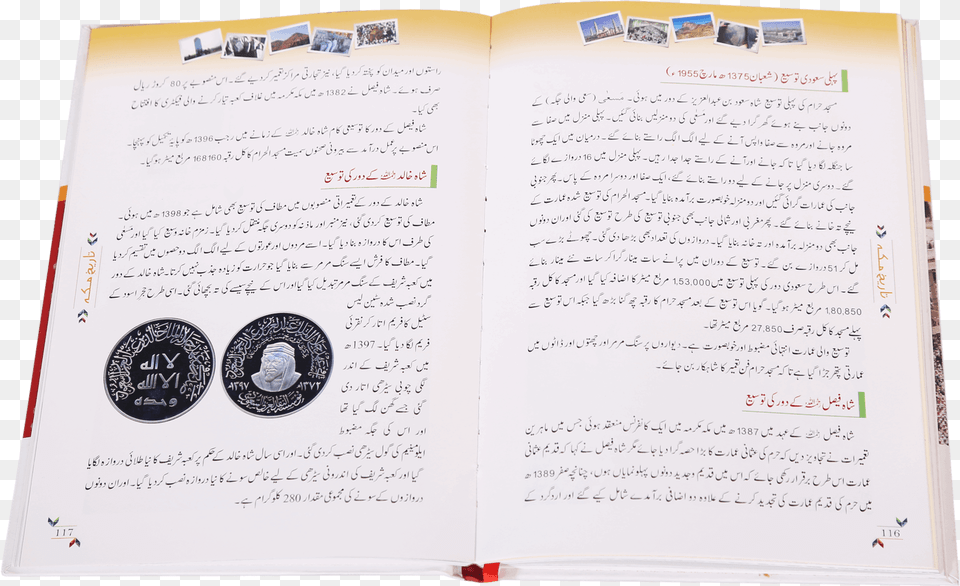 پہلی سعودی توسیع (شعبان 1375ھ مارچ 1955ء)
مسجد حرام کی پہلی توسیع شاہ سعود بن عبدالعزیز کے دور میں ہوئی۔ مسعیٰ (سعی والی جگہ) کے
دونوں جانب بنے ہوئے گھر گرا دیے گئے اور مسعیٰ کی دو منزلیں بنائی گئیں۔ پہلی منزل میں صفا سے
مروہ جانے اور مروہ سے صفا واپس آنے کے لیے الگ الگ راستے بنائے گئے۔ درمیان میں ایک چھوٹا
سا جنگلہ لگا دیا گیا تاکہ جانے اور آنے کے راستے جدا جدا رہیں۔ پہلی منزل میں 16 دروازے لگائے
گئے۔ دوسری منزل پر جانے کے لیے دو راستے بنائے گئے، ایک صفا اور دوسرا مروہ کے پاس۔ پھر جنوبی
جانب کی عمارات گرائی گئیں اور دو منزلہ خوبصورت برآمدے بنائے گئے۔ مسجد الحرام کی توسیع شدہ عمارت کے
نیچے تہ خانے بنائے گئے۔ پھر مغربی اور شمالی جانب بھی جنوبی توسیع کی طرح توسیع کی گئی اور ان دونوں
جانب بھی دو منزلہ برآمدہ اور تہ خانہ بنایا گیا۔ دروازوں کی تعداد بھی بڑھا دی گئی۔ چھوٹے بڑے سب
مل کر 51 دروازے بن گئے۔ توسیع کے دوران میں پرانے سات مینار گرا کر سات نئے مینار بنائے
گئے۔ اس طرح سعودی دور کی پہلی توسیع میں 1,53,000 مربع میٹر کا اضافہ کیا گیا اور مسجد کا کل رقبہ
1,80,850 مربع میٹر ہو گیا۔ گویا اس توسیع کے بعد مسجد حرام کا رقبہ چھ گنا بڑھ گیا جبکہ اس توسیع سے
پہلے مسجد کا کل رقبہ صرف 27,850 مربع میٹر تھا۔
توسیع والی عمارت انتہائی مضبوط اور خوبصورت ہے۔ دیواروں پر سنگ مرمر اور چھتوں اور ڈاٹوں میں
عمارتی پتھر جڑا گیا ہے تاکہ مسجد حرام فن تعمیر کا شاہکار بن جائے۔
شاہ فیصل کے دور کی توسیع
شاہ فیصل کے عہد میں 1387ھ میں مکہ مکرمہ میں ایک کانفرنس منعقد ہوئی جس میں ماہرین
تعمیرات نے تجاویز دیں کہ حرم کی عثمانی عمارت کا بڑا حصہ گرا دیا جائے مگر شاہ فیصل نے کہا کہ قدیم عثمانی
عمارت اس طرح برقرار رکھی جائے کہ اس میں قدیم و جدید دونوں پہلو نمایاں ہوں، چنانچہ صفر 1389ھ
میں حرم کی قدیم عمارت کی تجدید کرنے کے علاوہ دو اضافی برآمدے شامل کیے گئے اور اردگرد کے
116
تاریخ مکہ
راستوں اور میدان کو پختہ کر دیا گیا، نیز تجارتی مراکز تعمیر کر دیے گئے۔ اس منصوبے پر 80 کروڑ ریال
صرف ہوئے۔ شاہ فیصل نے 1382ھ میں مکہ مکرمہ میں غلاف کعبہ تیار کرنے والی فیکٹری کا افتتاح
بھی کیا۔
شاہ فیصل کے دور کا توسیعی کام شاہ خالد کے زمانے میں رجب 1396ھ کو پایۂ تکمیل کو پہنچا۔
اس منصوبے پر عمل درآمد سے بیرونی صحنوں سمیت مسجد الحرام کا کل رقبہ 168160 مربع میٹر ہو گیا۔
شاہ خالد کے دور کی توسیع
شاہ خالد کے دور کے تعمیراتی منصوبوں میں مطاف کی توسیع بھی شامل ہے جو 1398ھ میں ہوئی۔
مطاف کی توسیع کر دی گئی، نیز منبر اور باڑ کو دوسری جگہ منتقل کر دیا گیا۔ زمزم خانہ وسیع کیا گیا اور مسعیٰ
کی طرف اس کا دروازہ بنا دیا گیا۔ اسے مردوں اور عورتوں کے لیے الگ الگ دو حصوں میں تقسیم کر دیا
گیا۔ مطاف کا فرش ایسے سنگ مرمر سے بنایا گیا جو حرارت کو زیادہ جذب نہیں کرتا۔ شاہ خالد کے دور
گیا اور اس کے نیچے سیسے کی تہ بچھائی گئی۔ اسی طرح حجر اسود کے
گرد نصب شدہ سٹین لیس
سٹیل کا فریم اتار کر نقرئی
فریم لگا دیا گیا۔ 1397ھ
میں کعبہ شریف کے اندر
لگی چوبی سیڑھی اتار دی
گئی جسے گھن لگ گیا تھا
اور اس کی جگہ مضبوط
ایلومینیم کی گول سیڑھی نصب کر دی گئی۔ اور اسی سال شاہ خالد کے حکم پر کعبہ شریف کا نیا طلائی دروازہ لگایا
گیا اور کعبہ شریف کی اندرونی سیڑھی کے لیے خالص سونے کا نیا دروازہ نصب کر دیا گیا۔ اور ان دونوں
دروازوں کے سونے کی مجموعی مقدار 280 کلوگرام ہے۔
لا اله
الا الله
وحده
١٣٩٧ ١٣٧٢
117
تاریخ مکہ